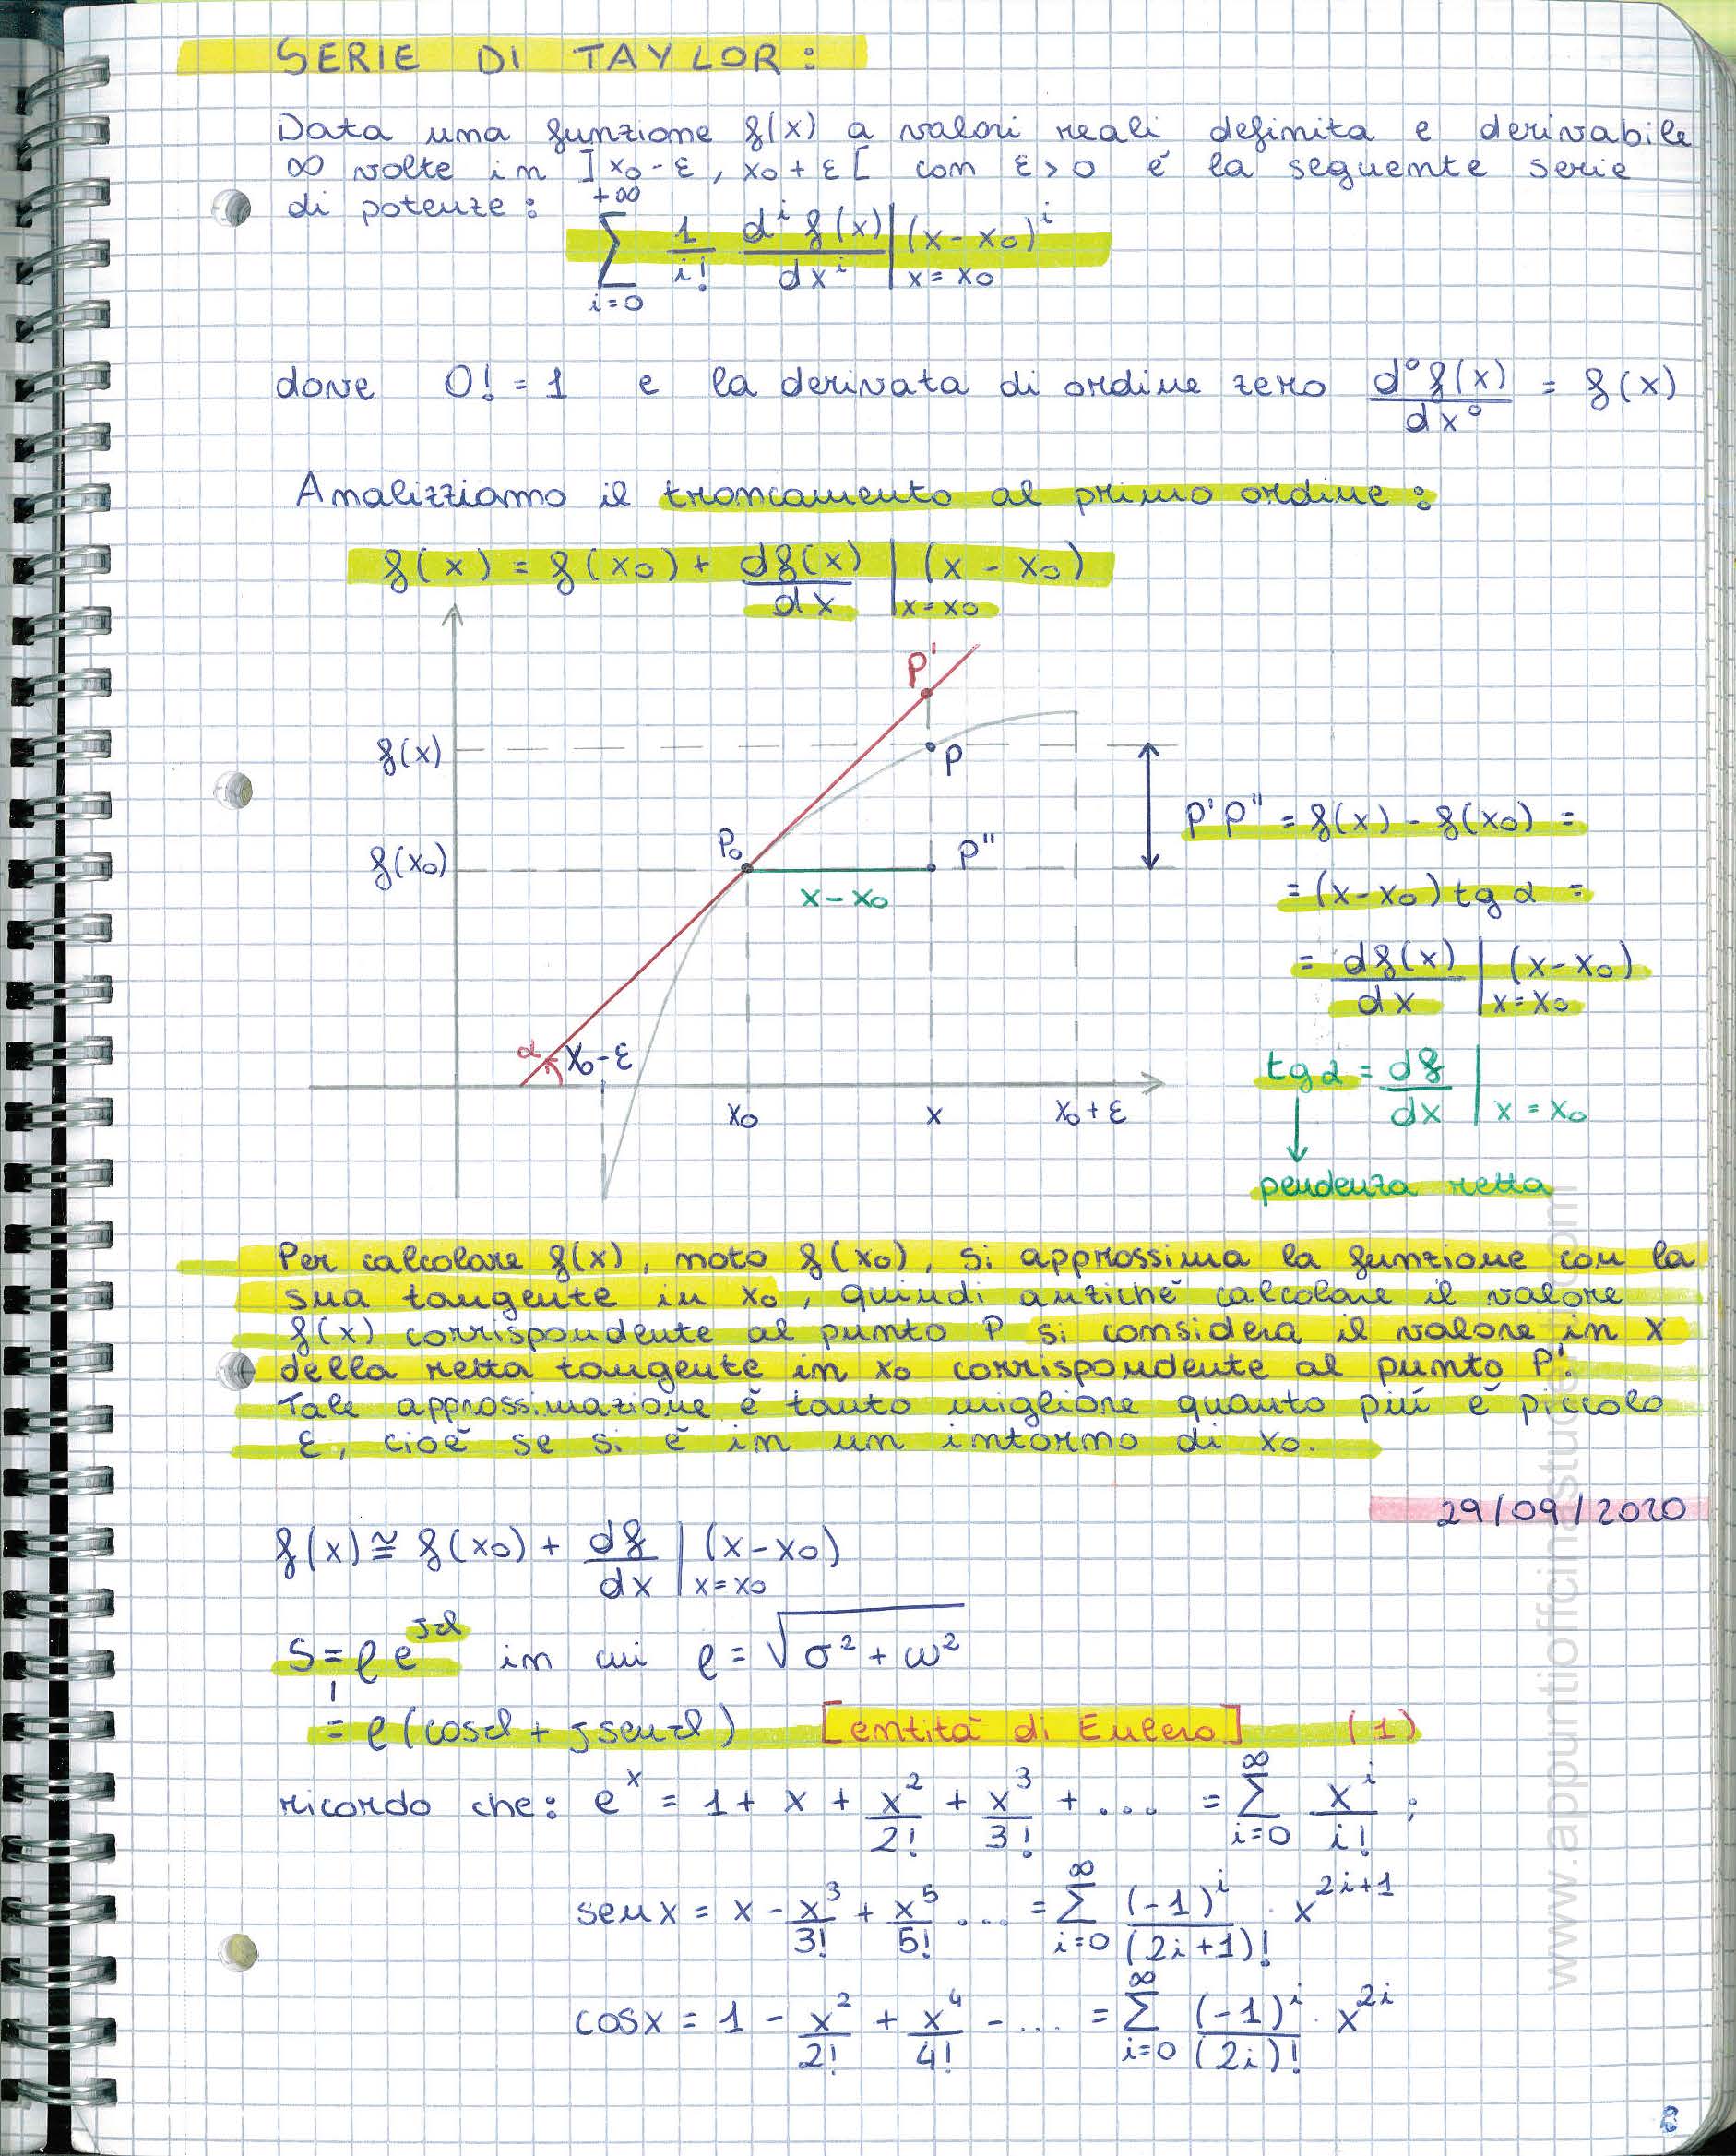 SERIE DI TAYLOR:
Data una funzione f(x) a valori reali definita e derivabile
∞ volte in ]x₀-ε, x₀+ε[ con ε>0 è la seguente serie
di potenze: +∞
∑ 1/i! dⁱf(x)/dxⁱ |x=x₀ (x-x₀)ⁱ
i=0
dove 0!=1 e la derivata di ordine zero d⁰f(x)/dx⁰ = f(x)
Analizziamo il troncamento al primo ordine:
f(x) = f(x₀) + df(x)/dx |x=x₀ (x-x₀)
P'
f(x)
P
P'P'' = f(x) - f(x₀) =
P₀
f(x₀)
P''
x-x₀
= (x-x₀) tg α =
= df(x)/dx |x=x₀ (x-x₀)
α
x₀-ε
tg α = df/dx |x=x₀
x₀
x
x₀+ε
pendenza retta
Per calcolare f(x), noto f(x₀), si approssima la funzione con la
sua tangente in x₀, quindi anzichè calcolare il valore
f(x) corrispondente al punto P si considera il valore in x
della retta tangente in x₀ corrispondente al punto P'.
Tale approssimazione è tanto migliore quanto più è piccolo
ε, cioè se si è in un intorno di x₀.
29/09/2020
f(x) ≅ f(x₀) + df/dx |x=x₀ (x-x₀)
S = ρ e^jϑ in cui ρ = √(σ² + ω²)
= ρ(cosϑ + jsenϑ) [entità di Eulero] (1)
ricordo che: eˣ = 1 + x + x²/2! + x³/3! + ... = ∑ i=0 ∞ xⁱ/i! ;
senx = x - x³/3! + x⁵/5! ... = ∑ i=0 ∞ (-1)ⁱ/(2i+1)! · x²ⁱ⁺¹
cosx = 1 - x²/2! + x⁴/4! - ... = ∑ i=0 ∞ (-1)ⁱ/(2i)! · x²ⁱ